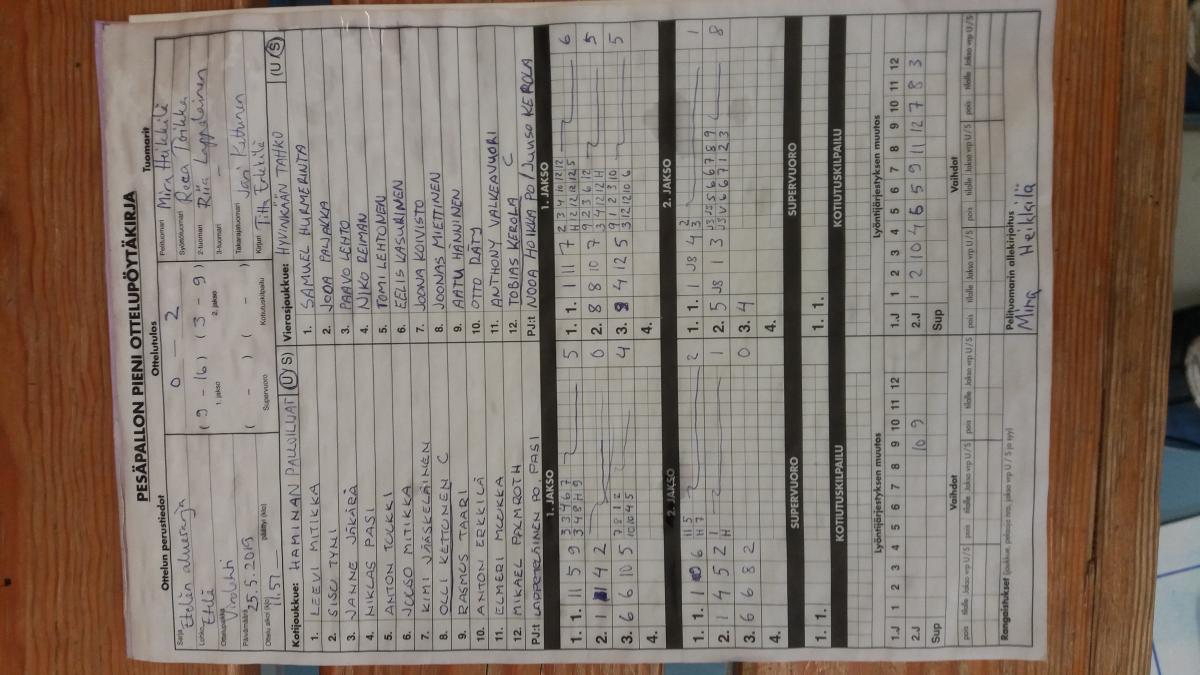 PESÄPALLON PIENI OTTELUPÖYTÄKIRJA
Ottelun perustiedot
Ottelutulos
Tuomarit
Sarja Etelän aluesarja
Lohko Etelä
Ottelupaikka Virolahti
Päivämäärä 25.5.2019
Ottelu alkoi (klo) 11,57 päättyi (klo)
0 – 2
( 9 – 16 ) ( 3 – 9 )
1. jakso 2. jakso
( – ) ( – )
Supervuoro Kotiutuskilpailu
Pelituomari Mira Heikkilä
Syöttötuomari Reea Toikka
2-tuomari Riia Lappalainen
3-tuomari –
Takarajatuomari Jani Kettunen
Kirjuri Titta Erkkilä
Kotijoukkue: HAMINAN PALLOILIJAT (U/S)
1. LEEVI MITIKKA
2. SISU TYNI
3. JANNE JÄKÄRÄ
4. NIKLAS PASI
5. ANTON TULKKI
6. JOOSO MITIKKA
7. KIMI JÄÄSKELÄINEN
8. OLLI KETTUNEN C
9. RASMUS TAARI
10. ANTON ERKKILÄ
11. ELMERI MUUKKA
12. MIKAEL PALMROTH
PJ:t LAPPETELÄINEN PO, PASI
Vierasjoukkue: HYVINKÄÄN TAHKO (U/S)
1. SAMUEL HURMERINTA
2. JOOA PALJAKKA
3. PAAVO LEHTO
4. NIKO REIMAN
5. TOMI LEHTONEN
6. EELIS KASURINEN
7. JOONA KOIVISTO
8. JOONAS MIETTINEN
9. AATU HÄNNINEN
10. OTTO RÄTY
11. ANTHONY VALKEAVUORI
12. TOBIAS KEROLA C
PJ:t NOOA HOIKKA PO / JUUSO KEROLA
1. JAKSO
1. 1. 11 5 9 3 3 4 6 7 5
3 4 8 H 9
2. 1 4 2 0
3. 6 6 10 5 7 8 1 2 4
10 10 4 5
4.
1. JAKSO
1. 1. 1 11 7 2 3 4 10 12 12 6
H 12 12 12 12 5
2. 8 8 10 7 9 2 3 6 12 5
3 4 12 12 H
3. 4 12 5 9 1 2 3 10 5
3 12 12 10 6
4.
2. JAKSO
1. 1. 1 6 11 5 2
H 7
2. 1 4 5 2 1 1
H
3. 6 6 8 2 0
4.
2. JAKSO
1. 1. 1 J8 4 2 1
3
2. 5 J8 1 3 8
3. 4
4.
SUPERVUORO
1. 1.
SUPERVUORO
1. 1.
KOTIUTUSKILPAILU
KOTIUTUSKILPAILU
Lyöntijärjestyksen muutos
1.J 1 2 3 4 5 6 7 8 9 10 11 12
2.J 10 9
Sup
Lyöntijärjestyksen muutos
1.J 1 2 3 4 5 6 7 8 9 10 11 12
2.J 1 2 10 4 6 5 9 11 12 7 8 3
Sup
Vaihdot
pois tilalle Jakso vrp U/S pois tilalle Jakso vrp U/S pois tilalle Jakso vrp U/S
Vaihdot
pois tilalle Jakso vrp U/S pois tilalle Jakso vrp U/S pois tilalle Jakso vrp U/S
Rangaistukset (joukkue, pelaaja nro, jakso vrp U / S ja syy)
Pelituomarin allekirjoitus
Mira Heikkilä